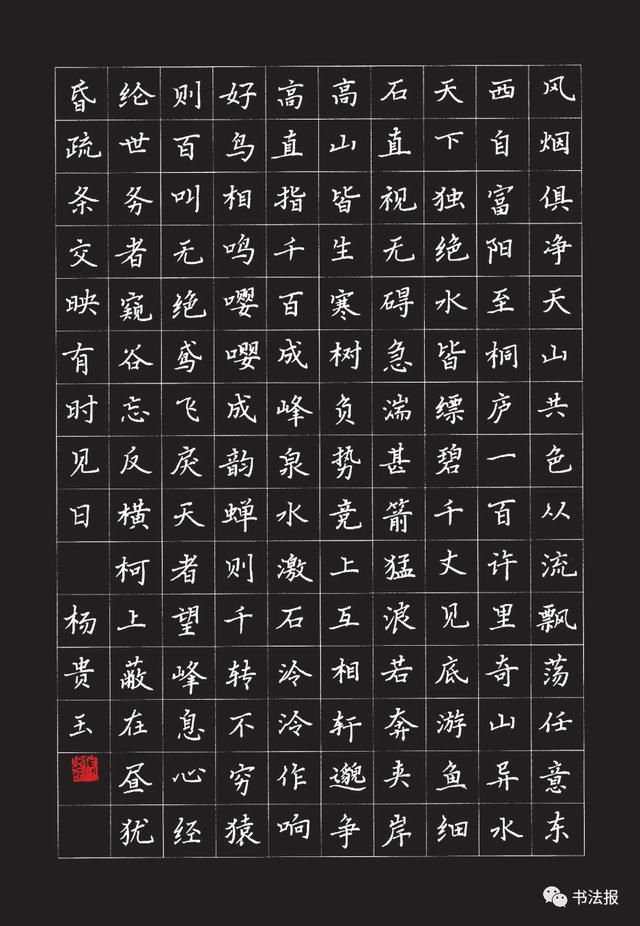 风烟俱净天山共色从流飘荡任意东
西自富阳至桐庐一百许里奇山异水
天下独绝水皆缥碧千丈见底游鱼细
石直视无碍急湍甚箭猛浪若奔夹岸
高山皆生寒树负势竞上互相轩邈争
高直指千百成峰泉水激石泠泠作响
好鸟相鸣嘤嘤成韵蝉则千转不穷猿
则百叫无绝鸢飞戾天者望峰息心经
纶世务者窥谷忘反横柯上蔽在昼犹
昏疏条交映有时见日 杨贵玉
书法报